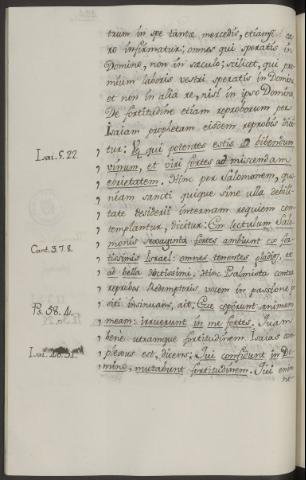 trum in spe tantæ mercedis, etiamsi ca-
ro infirmatur; omnes qui speratis in
Domino, non in sæculo; scilicet, qui præ-
mium laboris vestri speratis in Domino
et non in alia re, nisi in ipso Domino.
De fortitudine etiam reproborum per
Isaiam prophetam eisdem reprobis dici-
Isai. 5. 22. tur: Væ qui potentes estis ad bibendum
vinum, et viri fortes ad miscendam
ebrietatem. Hinc per Salomonem, quo-
niam sancti quique sine ulla debili-
tate desiderii internam requiem con-
templantur, dicitur: En lectulum Salo-
Cant. 3. 7. 8. monis sexaginta fortes ambiunt ex for-
tissimis Israel: omnes tenentes gladios, et
ad bella doctissimi. Hinc Psalmista contra
reprobos Redemptoris vocem in passione po-
siti insinuans, ait: Ecce ceperunt animam
Ps. 58. 4. meam: irruerunt in me fortes. Quam
bene utramque fortitudinem Isaias com-
Isai. 40. 31. plexus est, dicens: Qui confidunt in Do-
mino, mutabunt fortitudinem. Qui enim